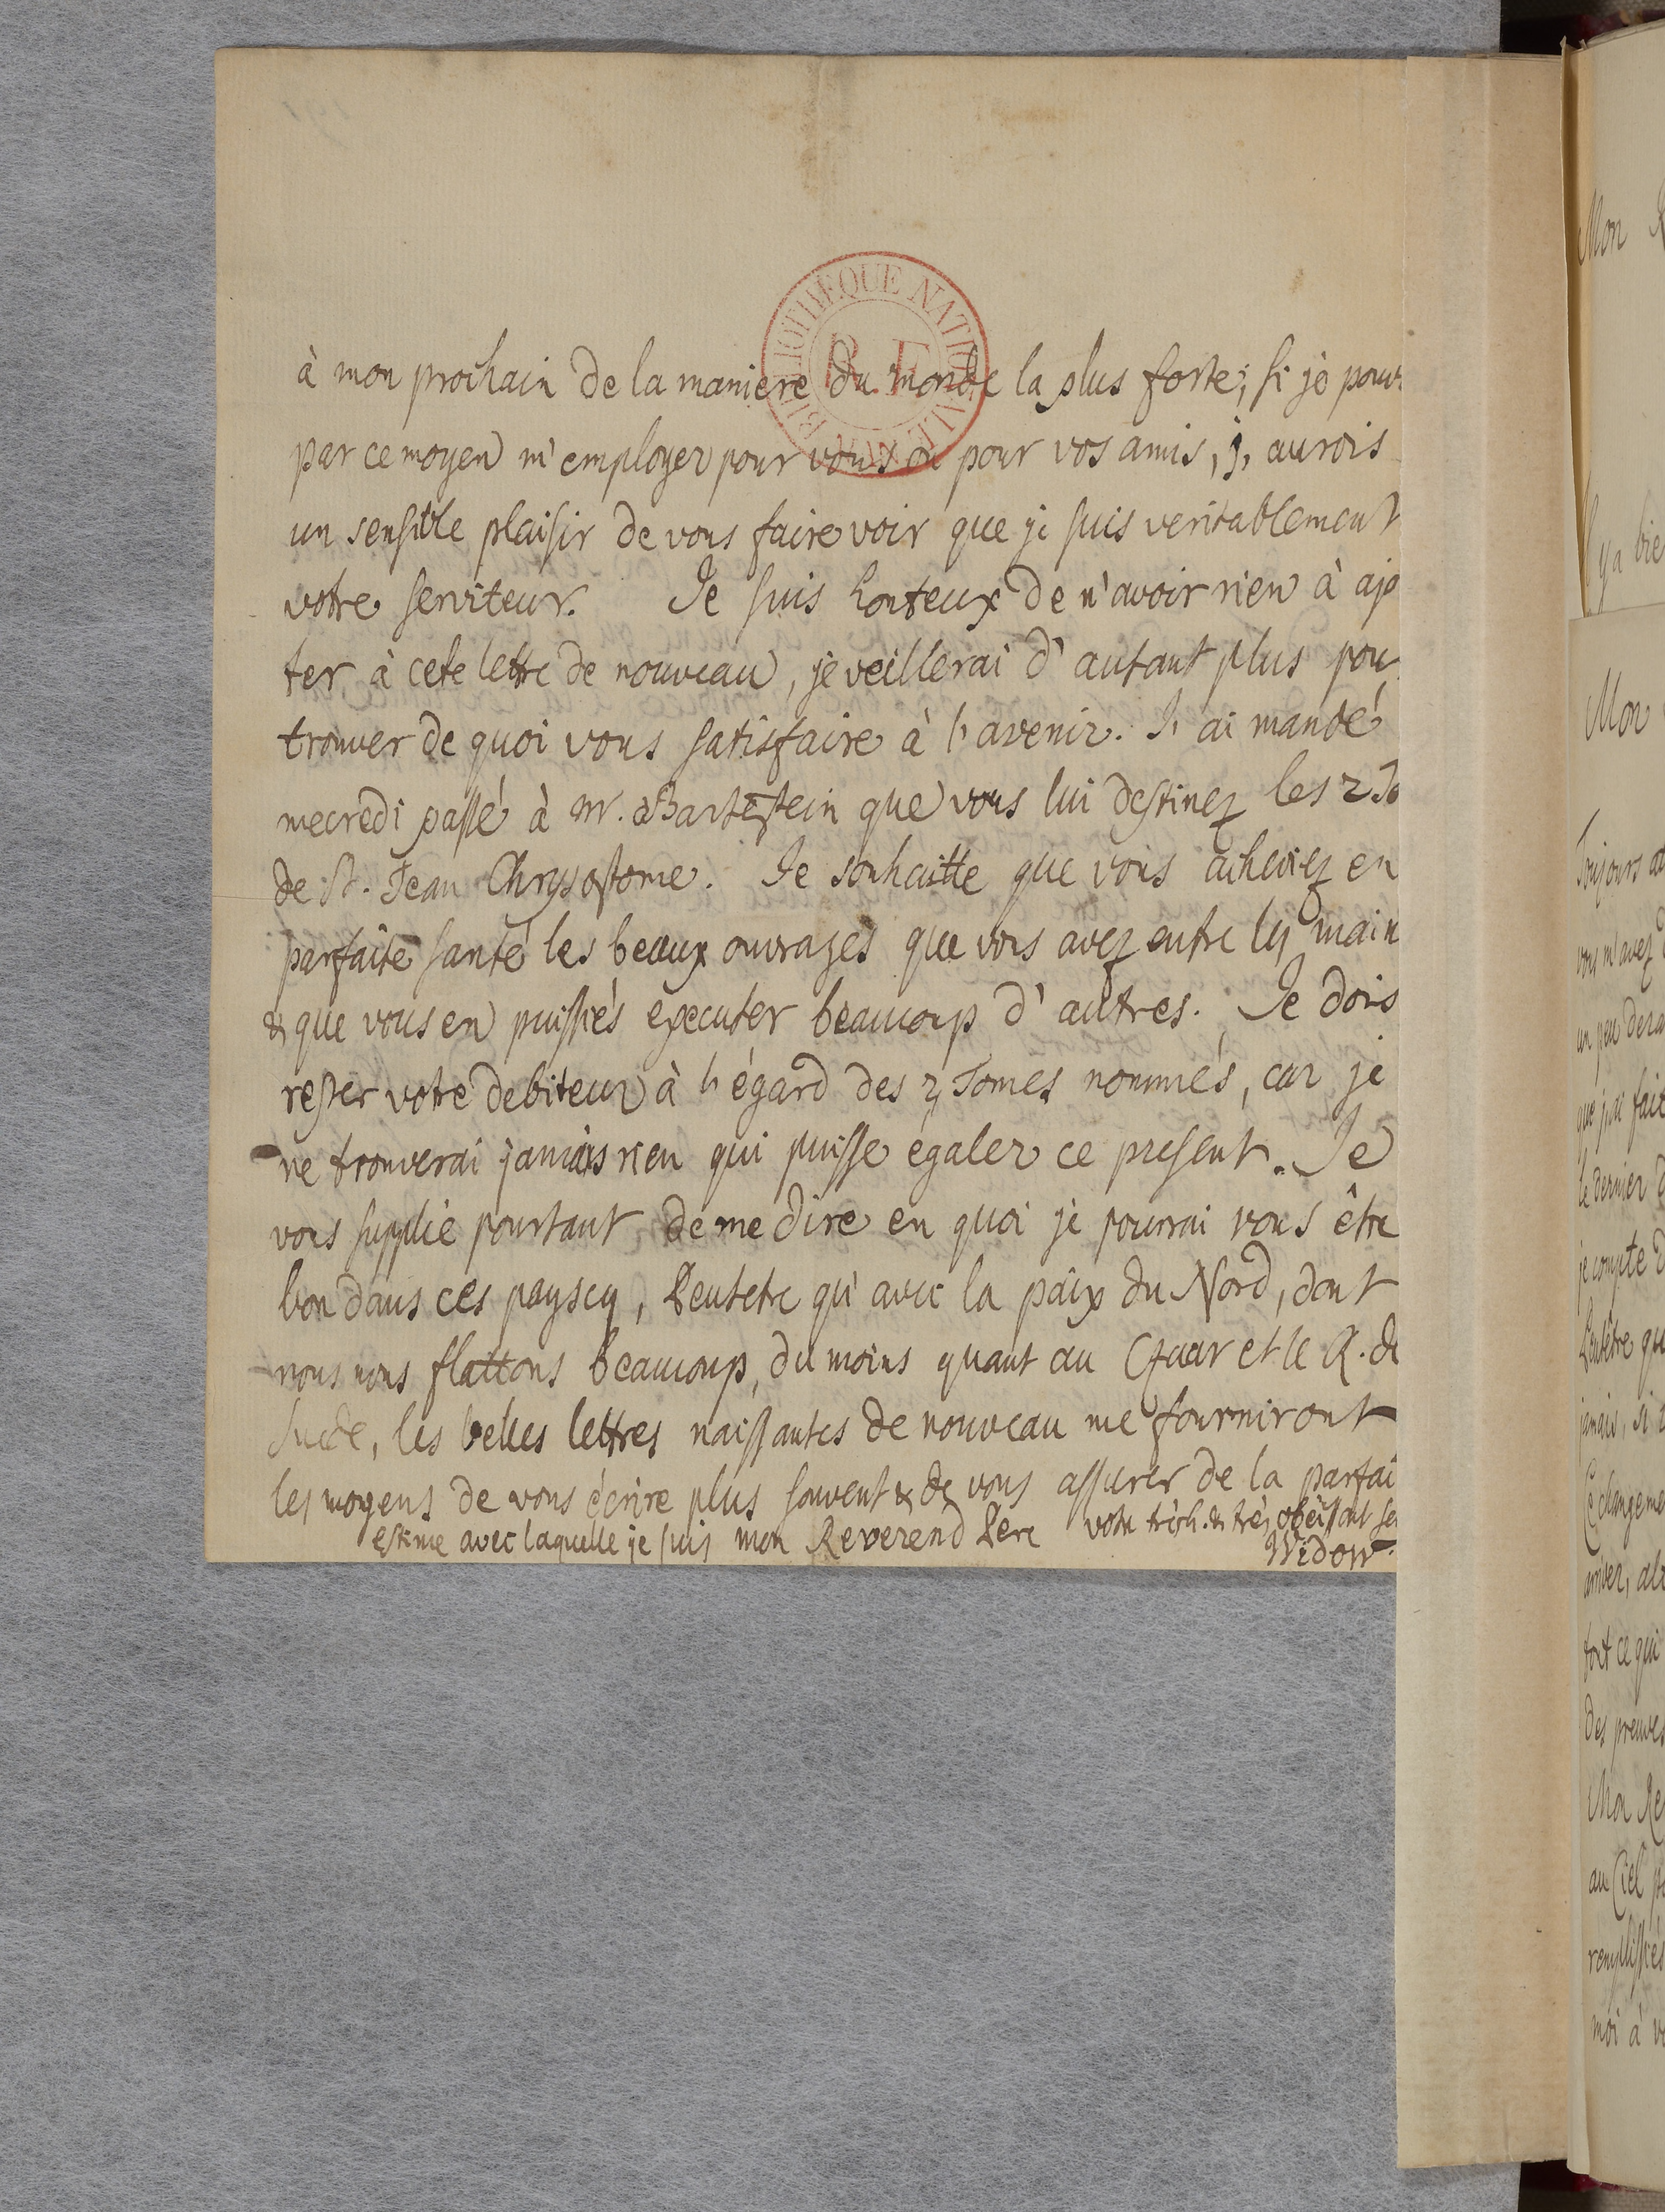 BIBLIOTHEQUE NATIONALE
R.F.
à mon prochain de la maniere du monde la plus forte; si je pouv
par ce moyen m'employer pour vous ou pour vos amis, j'aurois
un sensible plaisir de vous faire voir que je suis veritablement
votre serviteur. Je suis honteux de n'avoir rien à ajo
ter à cete lettre de nouveau, je veillerai d'autant plus pou
trouver de quoi vous satisfaire à l'avenir. J'ai mandé
mecredi passé à Mr. Bartestein que vous lui destinez les 2 To
de St. Jean Chrysostome. Je souhaitte que vous acheviez en
parfaite santé les beaux ouvrages que vous avez entre les main
& que vous en puissiés executer beaucoup d'autres. Je dois
rester votre debiteur à l'égard des 2 Tomes nommés, car je
ne trouverai jamais rien qui puisse égaler ce present. Je
vous supplie pourtant de me dire en quoi je pourrai vous être
bon dans ces payscy, Peutetre qu'avec la paix du Nord, dont
nous nous flattons beaucoup, du moins quant au Czaar et le R. de
Suede, les belles lettres naissantes de nouveau me fourniront
les moyens de vous écrire plus souvent & de vous assurer de la parfai
estime avec laquelle je suis mon Reverend Pere votre très h. & très obéissant se
Widow.
Mon R
Il ya bie
Mon
Toujours
vous m'avez
un peu
que j'ai fait
le dernier d
je compte d
Peutêtre qu
jamais, si
Ce changeme
arriver,
tout ce qui
des preuves
Mon Re
au Ciel
remplissiés
moi à v